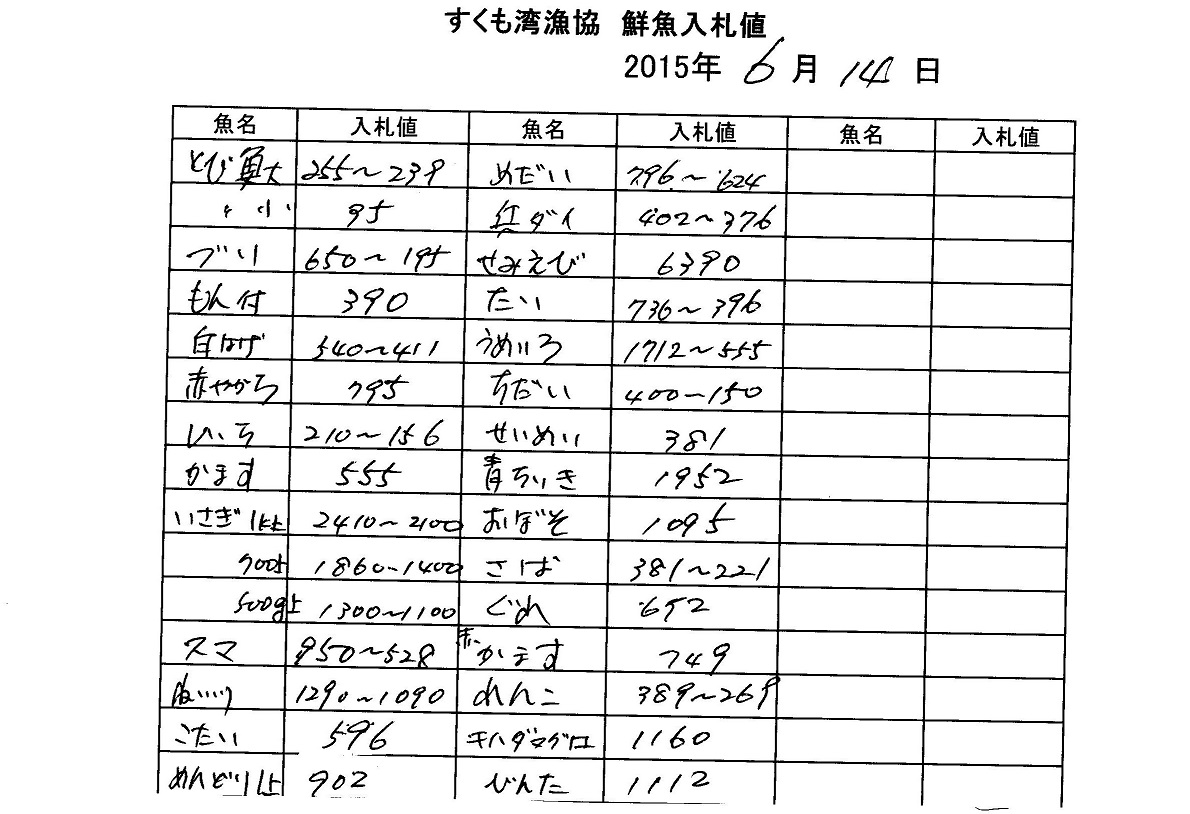 すくも湾漁協 鮮魚入札値
2015年 6月 14日
魚名 入札値 魚名 入札値 魚名 入札値
とび魚大 255～239 めだい 796～624
〃 小 95 紅ダイ 402～376
ブリ 650～195 せみえび 6390
もん付 390 たい 736～396
白はげ 540～411 うめいろ 1712～555
赤やがら 795 ちだい 400～150
210～156 せいめい 381
かます 555 青ちいき 1952
いさぎ 2410～2100 おばそ 1095
700上 1860～1400 さば 381～221
500g上 1300～1100 ぐれ 652
スマ 950～528 赤かます 749
1290～1090 れんこ 389～269
こたい 596 キハダマグロ 1160
めんどり 902 びんた 1112